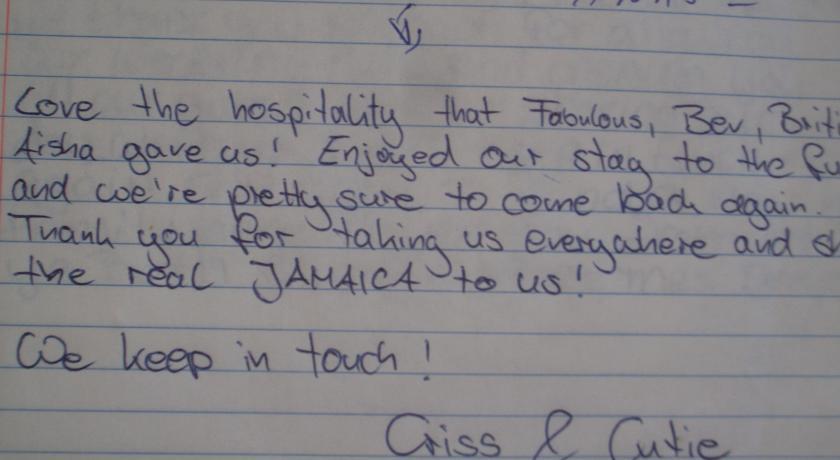 Love the hospitality that Fabulous, Bev, Briti
Aisha gave us! Enjoyed our stay to the fu
and we're pretty sure to come back again.
Thank you for taking us everywhere and s
the real JAMAICA to us!
We keep in touch!
Criss & Cutie